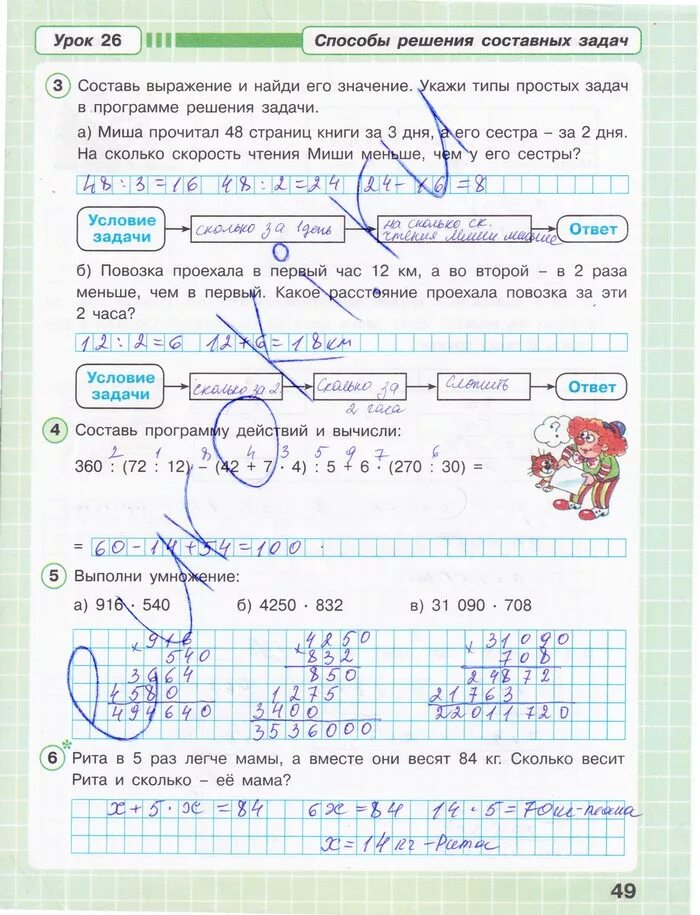 Урок 26
Способы решения составных задач
3 Составь выражение и найди его значение. Укажи типы простых задач
в программе решения задачи.
а) Миша прочитал 48 страниц книги за 3 дня, а его сестра – за 2 дня.
На сколько скорость чтения Миши меньше, чем у его сестры?
48 : 3 = 16 48 : 2 = 24 24 - 16 = 8
Условие задачи
сколько за 1 день
на сколько ск. чтения Миши меньше
Ответ
б) Повозка проехала в первый час 12 км, а во второй – в 2 раза
меньше, чем в первый. Какое расстояние проехала повозка за эти
2 часа?
12 : 2 = 6 12 + 6 = 18 км
Условие задачи
сколько за 2
Сколько за 2 часа
Сложить
Ответ
4 Составь программу действий и вычисли:
2 1 8 4 3 5 9 7 6
360 : (72 : 12) – (42 + 7 · 4) : 5 + 6 · (270 : 30) =
= 60 - 14 + 54 = 100
5 Выполни умножение:
а) 916 · 540 б) 4250 · 832 в) 31 090 · 708
× 916 × 4250 × 31090
540 832 708
3664 850 24872
4580 1275 21763
494640 3400 22011720
3536000
6* Рита в 5 раз легче мамы, а вместе они весят 84 кг. Сколько весит
Рита и сколько – её мама?
x + 5 · x = 84 6x = 84 14 · 5 = 70 кг - мама
x = 14 кг - Рита
49
uroki.ru